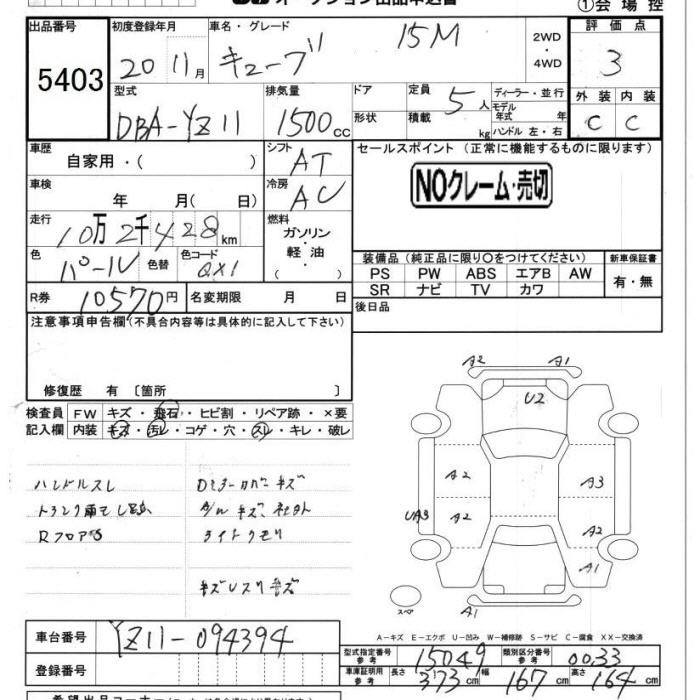 オークション出品申込書
①会場控
出品番号 5403
初度登録年月 20 11月
車名・グレード キューブ 15M
2WD・4WD
評価点 3
型式 DBA-YZ11
排気量 1500cc
ドア 形状
定員 5人
積載 kg
ディーラー・並行
モデル年式 年
ハンドル 左・右
外装 C 内装 C
車歴 自家用・( )
シフト AT
セールスポイント (正常に機能するものに限ります)
NOクレーム・売切
車検 年 月( 日)
冷房 AC
走行 10万2千428km
燃料 ガソリン・軽油・( )
色 パール 色替 色コード QX1
装備品 (純正品に限り○をつけてください)
新車保証書 有・無
PS PW ABS エアB AW
SR ナビ TV カワ
R券 10570円 名変期限 月 日
後日品
注意事項申告欄 (不具合内容等は具体的に記入して下さい)
修復歴 有 〔箇所 〕
検査員記入欄
FW キズ・飛石・ヒビ割・リペア跡・×要
内装 キズ・汚レ・コゲ・穴・スレ・キレ・破レ
ハンドルスレ
Rフロア
A/W キズ 社外
ライトクモリ
A2 A1
U2
A2 A3
UA3 A2 A2
A1
スペ
A1
A-キズ E-エクボ U-凹み W-補修跡 S-サビ C-腐食 XX-交換済
車台番号 YZ11-094394
登録番号
型式指定番号 参考 15049
類別区分番号 参考 0033
車庫証明用 参考 長さ 373cm 幅 167cm 高さ 164cm